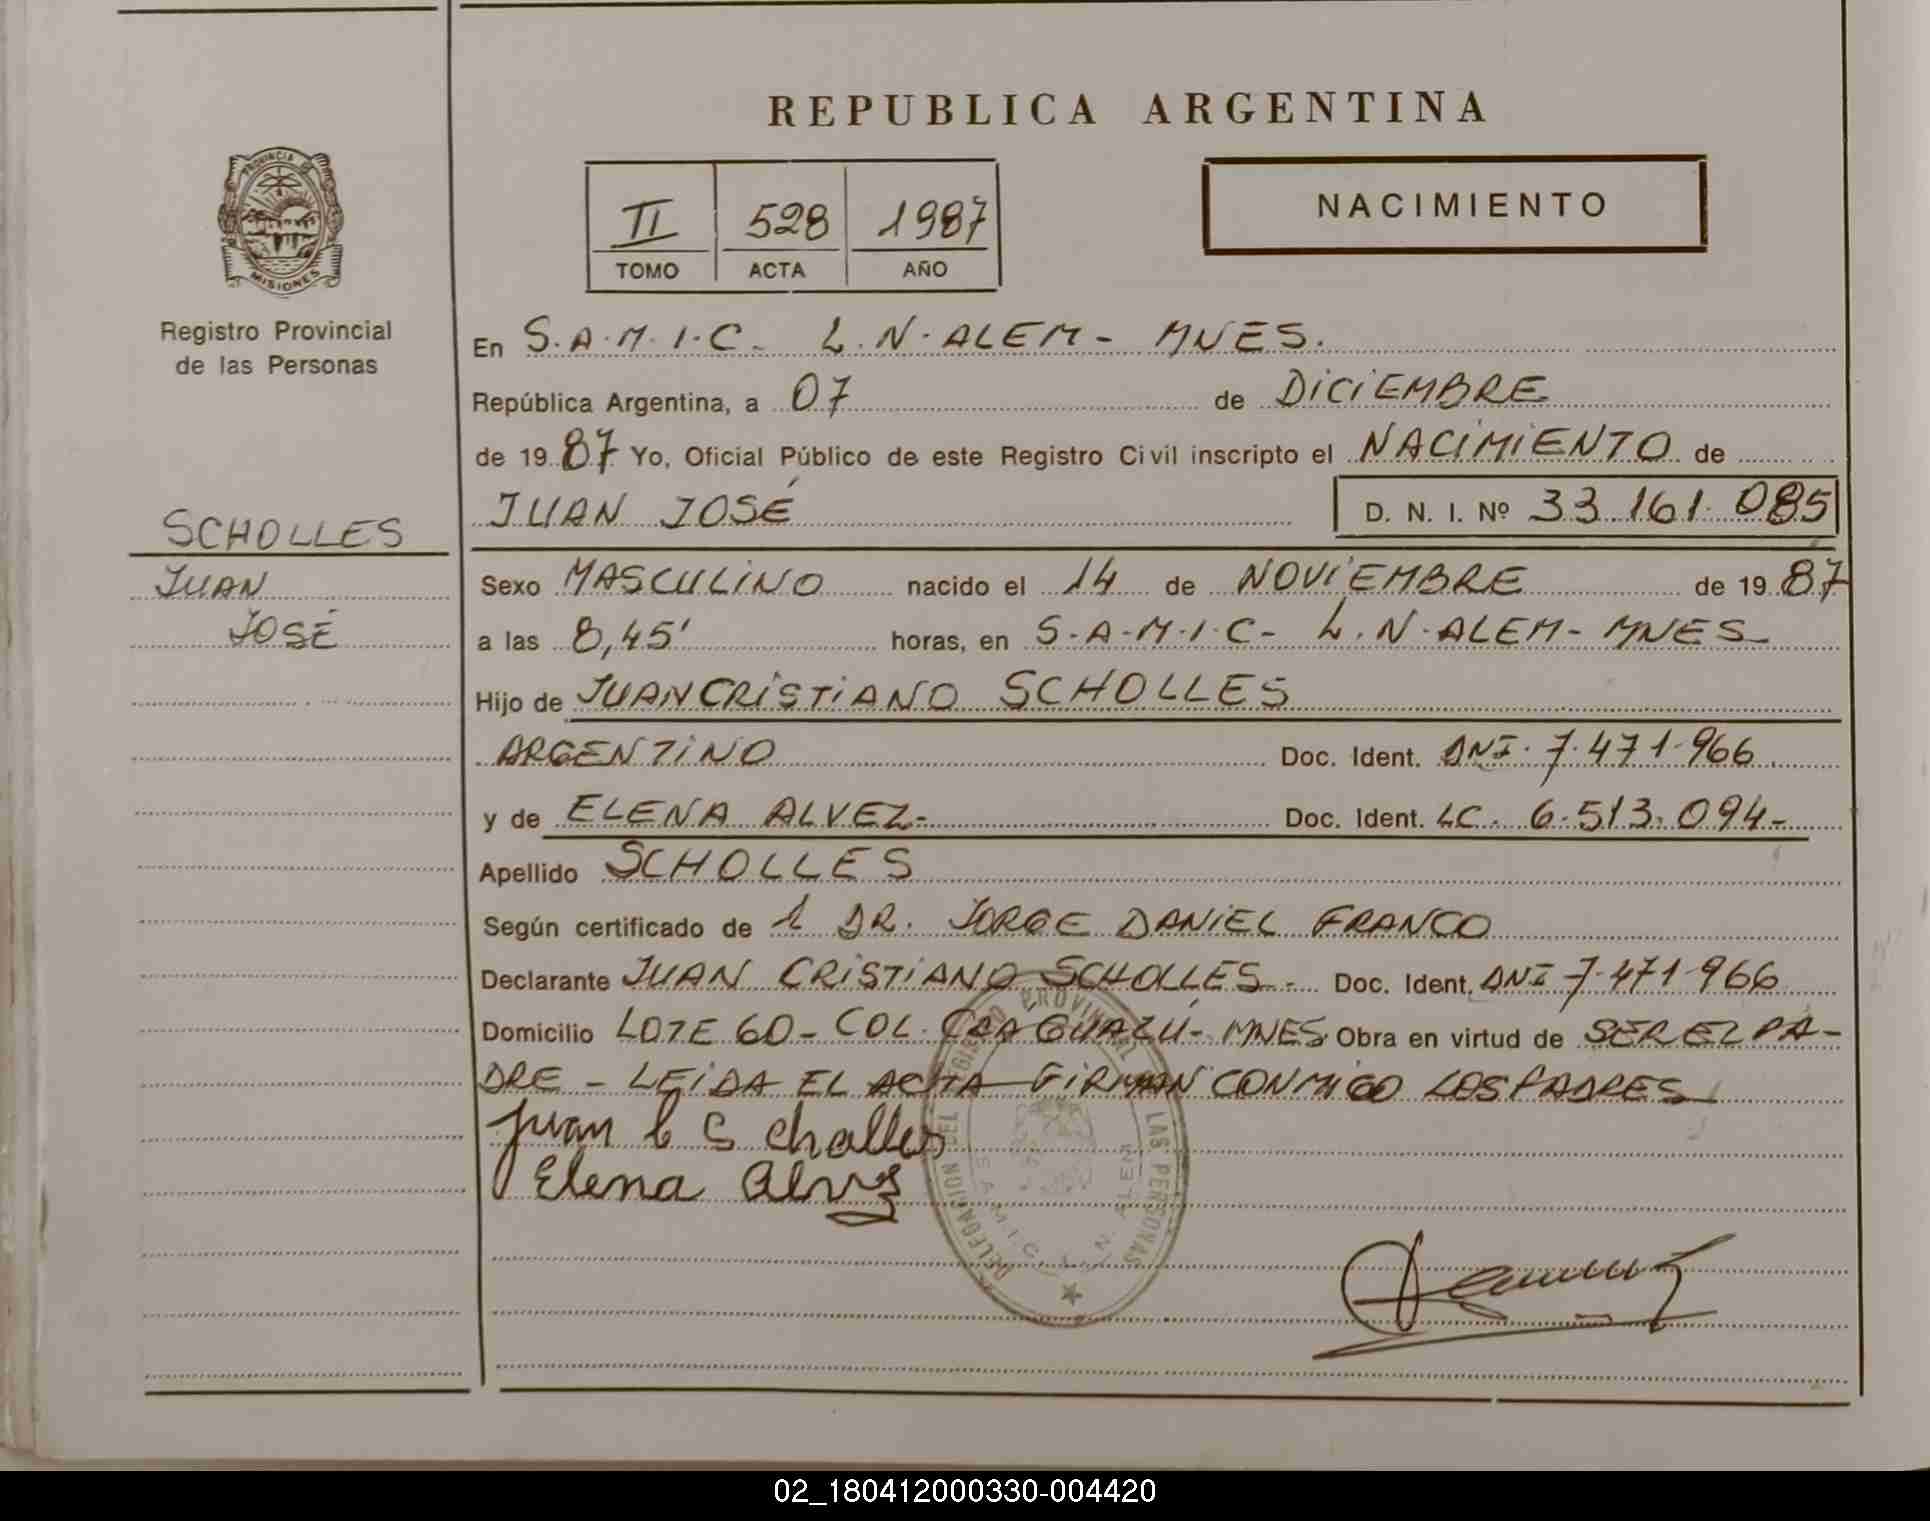 REPUBLICA ARGENTINA
PROVINCIA DE
MISIONES
Registro Provincial
de las Personas
II 528 1987
TOMO ACTA AÑO
NACIMIENTO
En S.A.M.I.C. L.N.ALEM - MNES.
República Argentina, a 07 de DICIEMBRE
de 1987 Yo, Oficial Público de este Registro Civil inscripto el NACIMIENTO de
JUAN JOSÉ D. N. I. Nº 33.161.085
SCHOLLES
JUAN
JOSÉ
Sexo MASCULINO nacido el 14 de NOVIEMBRE de 1987
a las 8,45' horas, en S.A.M.I.C- L.N.ALEM- MNES-
Hijo de JUAN CRISTIANO SCHOLLES
ARGENTINO Doc. Ident. DNI. 7.471.966
y de ELENA ALVEZ- Doc. Ident. LC. 6.513.094-
Apellido SCHOLLES
Según certificado de 1 DR. JORGE DANIEL FRANCO
Declarante JUAN CRISTIANO SCHOLLES.- Doc. Ident. DNI 7.471.966
Domicilio LOTE 60- COL. CAAGUAZÚ- MNES Obra en virtud de SER EL PA-
DRE - LEIDA EL ACTA FIRMAN CONMIGO LOS PADRES
Juan C Scholles
Elena Alvez
DELEGACION DEL REGISTRO PROVINCIAL LAS PERSONAS
S.A.M.I.C. L.N. ALEM
02_180412000330-004420